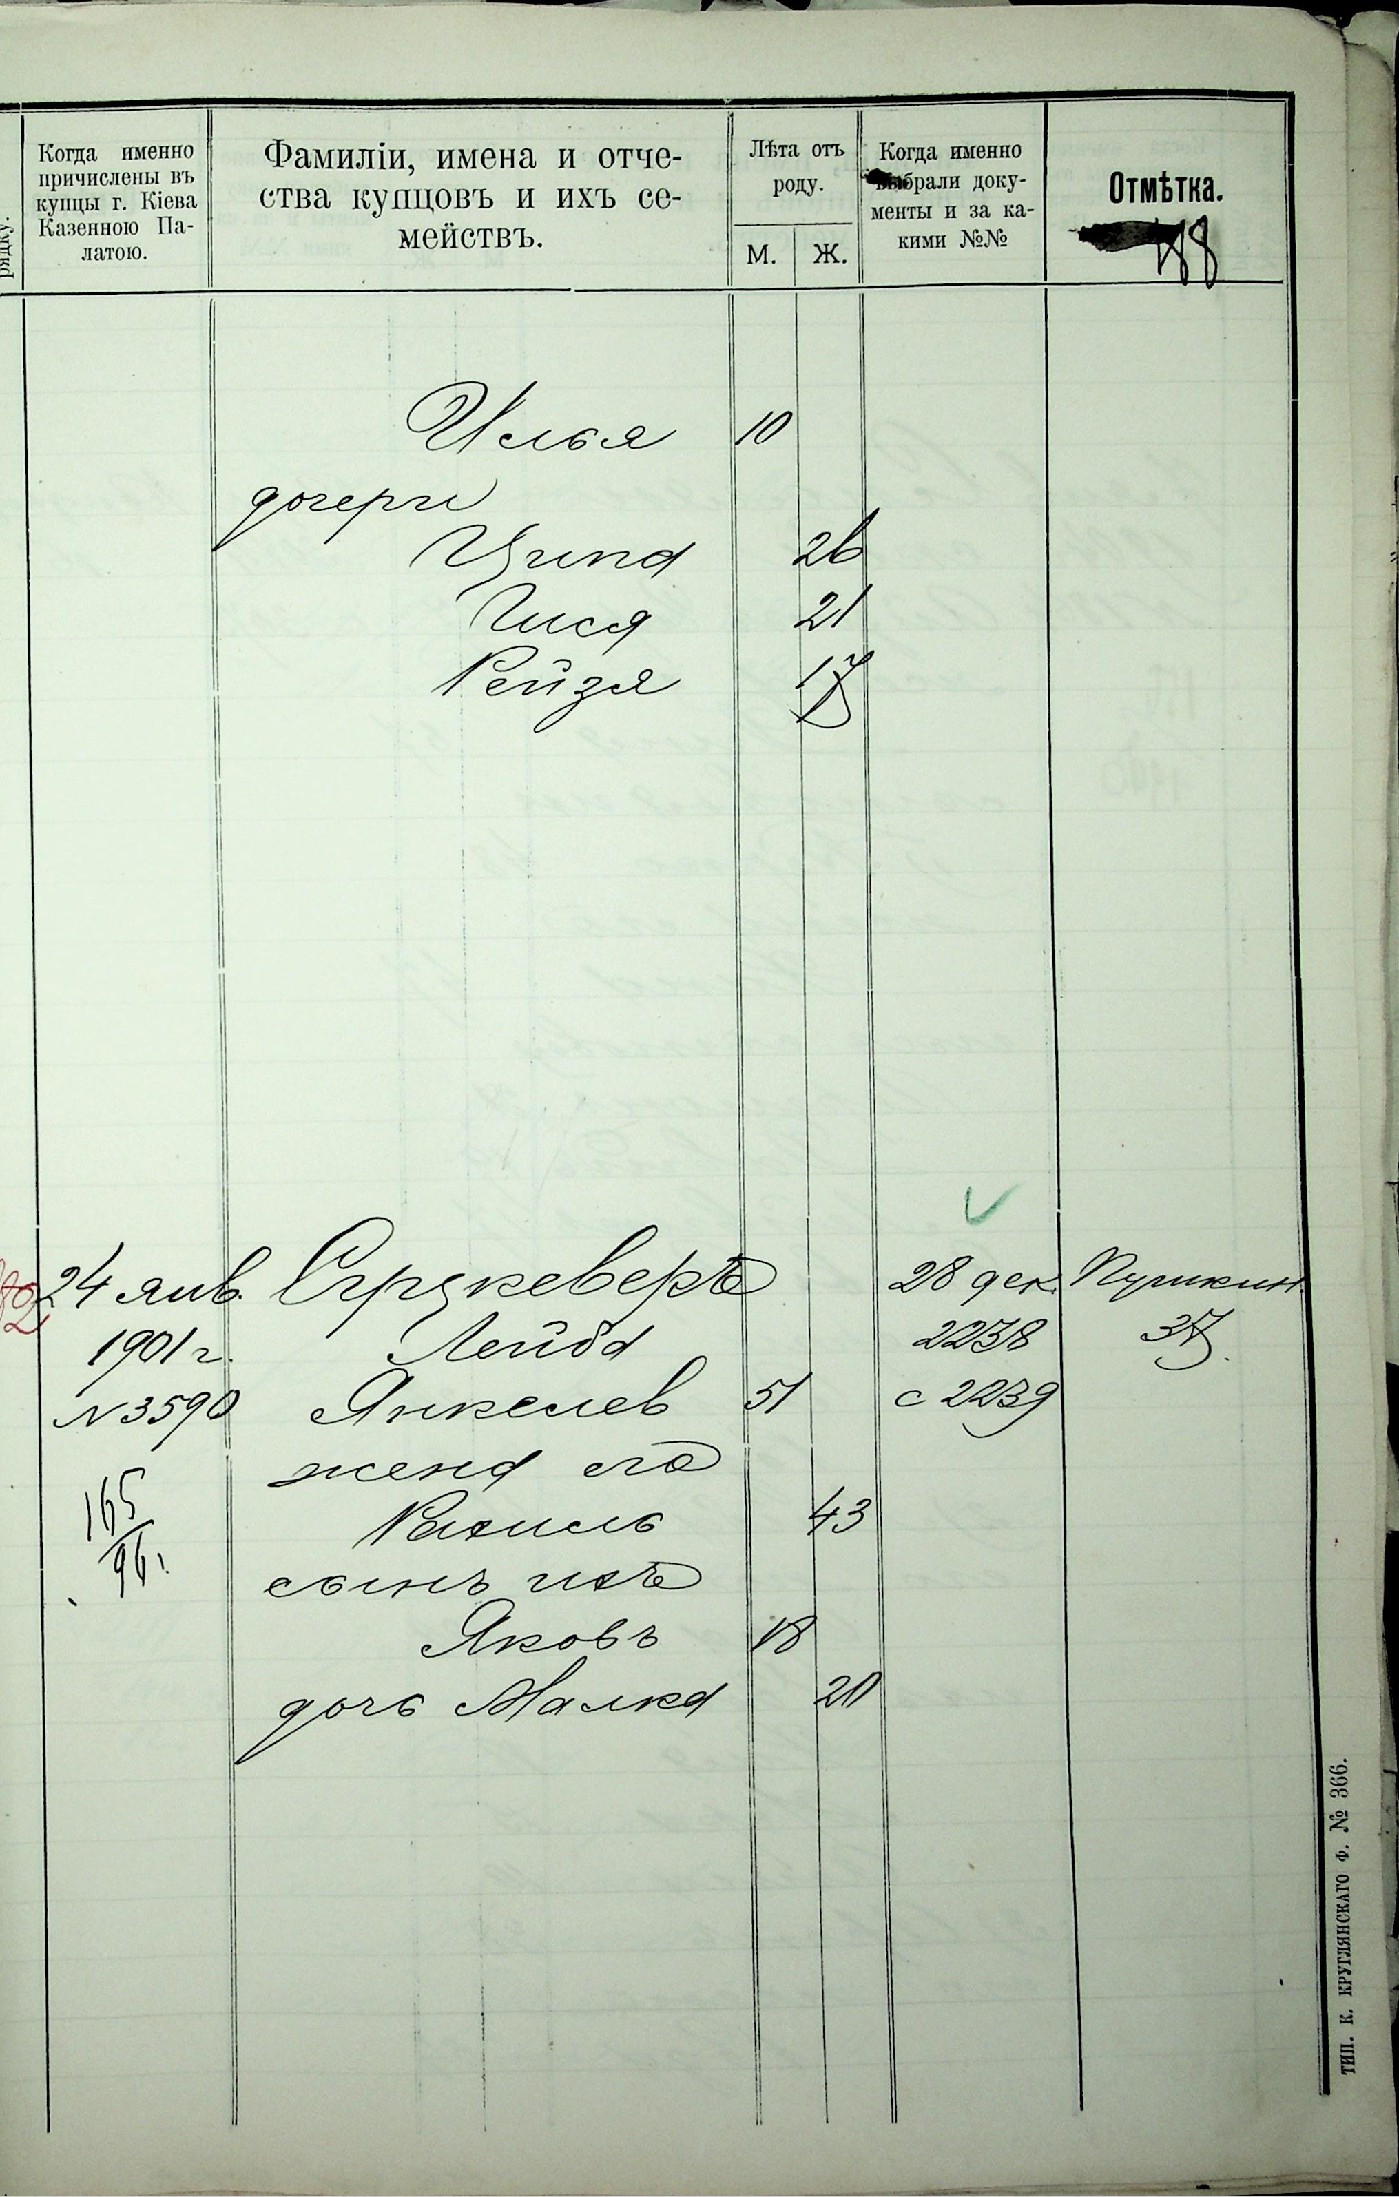 рядку.
Когда именно
причислены въ
купцы г. Кіева
Казенною Па-
латою.
Фамиліи, имена и отче-
ства купцовъ и ихъ се-
мействъ.
Лѣта отъ
роду.
М. Ж.
Когда именно
выбрали доку-
менты и за ка-
кими №№
Отмѣтка.
188
Илья 10
дочери
Ципа 26
Гися 21
Рейзя 17
24 янв. Струкеверъ 28 дек. Пушкин.
1901 г. Лейба 2238 37.
N 3590 Янкелев 51 с 2239
жена его
165
96 г.
Рахиль 43
сынъ ихъ
Яковъ 18
дочь Малка 20
ТИП. К. КРУГЛЯНСКАГО Ф. № 366.